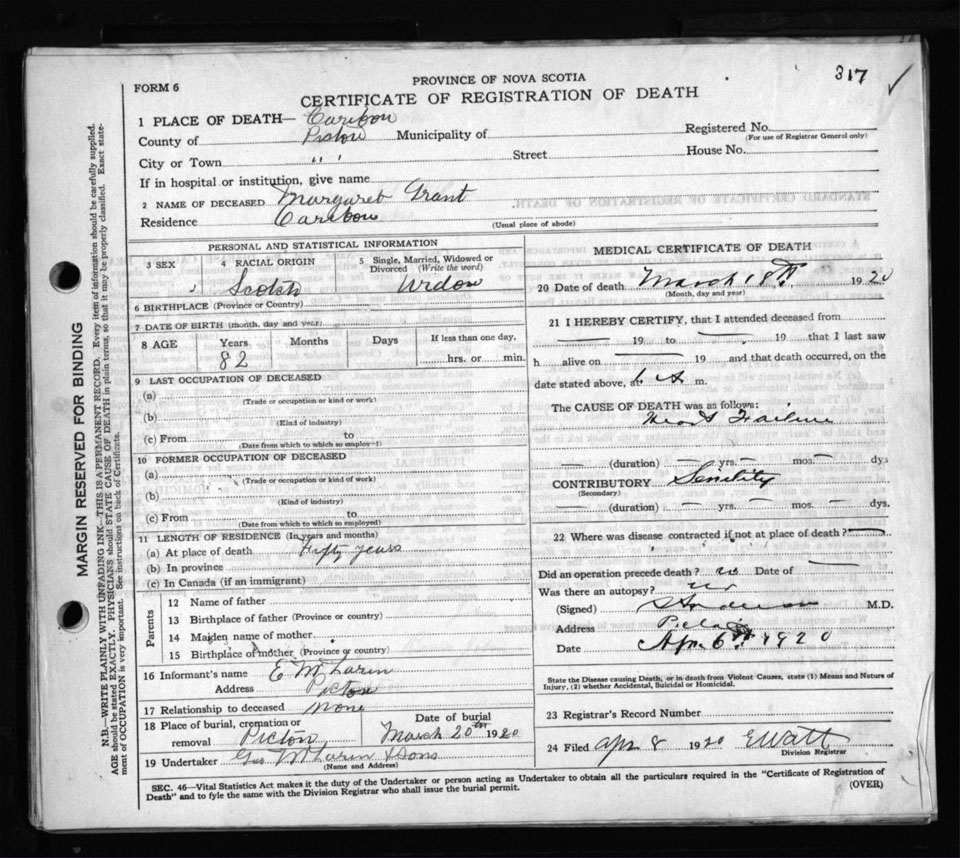 317 ✓
FORM 6
PROVINCE OF NOVA SCOTIA
CERTIFICATE OF REGISTRATION OF DEATH
1 PLACE OF DEATH— Caribou
County of Pictou Municipality of
Registered No.
(For use of Registrar General only)
City or Town " " Street House No.
If in hospital or institution, give name
2 NAME OF DECEASED Margaret Grant
Residence Caribou
(Usual place of abode)
PERSONAL AND STATISTICAL INFORMATION
3 SEX 4 RACIAL ORIGIN Scotch
5 Single, Married, Widowed or Divorced (Write the word) Widow
6 BIRTHPLACE (Province or Country)
7 DATE OF BIRTH (month, day and year)
8 AGE Years Months Days If less than one day,
82 hrs. or min.
9 LAST OCCUPATION OF DECEASED
(a)
(Trade or occupation or kind of work)
(b)
(Kind of industry)
(c) From to
(Date from which to which so employed)
10 FORMER OCCUPATION OF DECEASED
(a)
(Trade or occupation or kind of work)
(b)
(Kind of industry)
(c) From to
(Date from which to which so employed)
11 LENGTH OF RESIDENCE (In years and months)
(a) At place of death Fifty years
(b) In province
(c) In Canada (if an immigrant)
Parents
12 Name of father
13 Birthplace of father (Province or Country)
14 Maiden name of mother
15 Birthplace of mother (Province or country)
16 Informant's name E McLaren
Address Pictou
17 Relationship to deceased none
18 Place of burial, cremation or removal Pictou
Date of burial March 20th 1920
19 Undertaker Geo McLaren & Sons
(Name and Address)
MEDICAL CERTIFICATE OF DEATH
20 Date of death March 18th 1920
(Month, day and year)
21 I HEREBY CERTIFY, that I attended deceased from
— 19 to — 19 that I last saw
h alive on — 19 and that death occurred, on the
date stated above, at 6 A m.
The CAUSE OF DEATH was as follows:
Heart Failure
— (duration) — yrs. — mos. — dys
CONTRIBUTORY Senility
(Secondary)
— (duration) — yrs. — mos. — dys.
22 Where was disease contracted if not at place of death? —
Did an operation precede death? no Date of —
Was there an autopsy? no
(Signed) M.D.
Address Pictou
Date Apr 6th 1920
State the Disease causing Death, or in death from Violent Causes, state (1) Means and Nature of
Injury, (2) whether Accidental, Suicidal or Homicidal.
23 Registrar's Record Number
24 Filed Apr 8 1920 E Watt
Division Registrar
SEC. 46—Vital Statistics Act makes it the duty of the Undertaker or person acting as Undertaker to obtain all the particulars required in the "Certificate of Registration of
Death" and to fyle the same with the Division Registrar who shall issue the burial permit. (OVER)
MARGIN RESERVED FOR BINDING
N.B.—WRITE PLAINLY WITH UNFADING INK—THIS IS A PERMANENT RECORD. Every item of information should be carefully supplied.
AGE should be stated EXACTLY. PHYSICIANS should STATE CAUSE OF DEATH in plain terms, so that it may be properly classified. Exact state-
ment of OCCUPATION is very important. See instructions on back of Certificate.